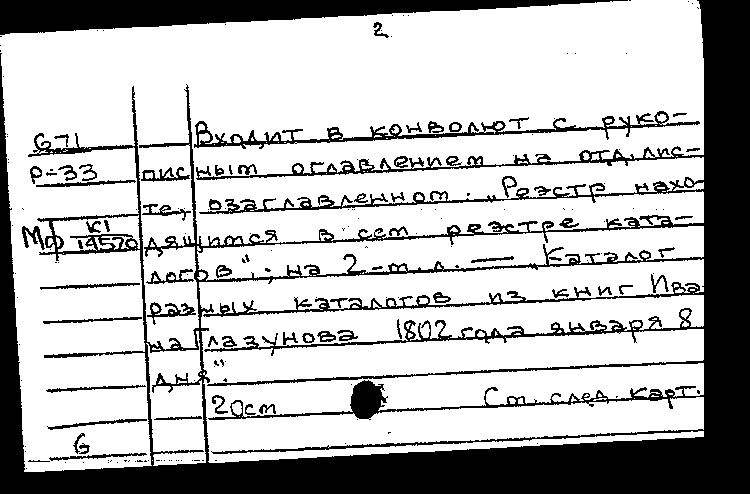 2
671 Входит в конволют с руко-
Р-33 писным оглавлением на отд. лис-
те, озаглавленном: „Реэстр нахо-
Мф К1/14520 дящимся в сем реэстре ката-
логов"; на 2-м л. — „Каталог
разных каталогов из книг Ива
на Глазунова 1802 года января 8
дня".
20см См. след. карт.
6